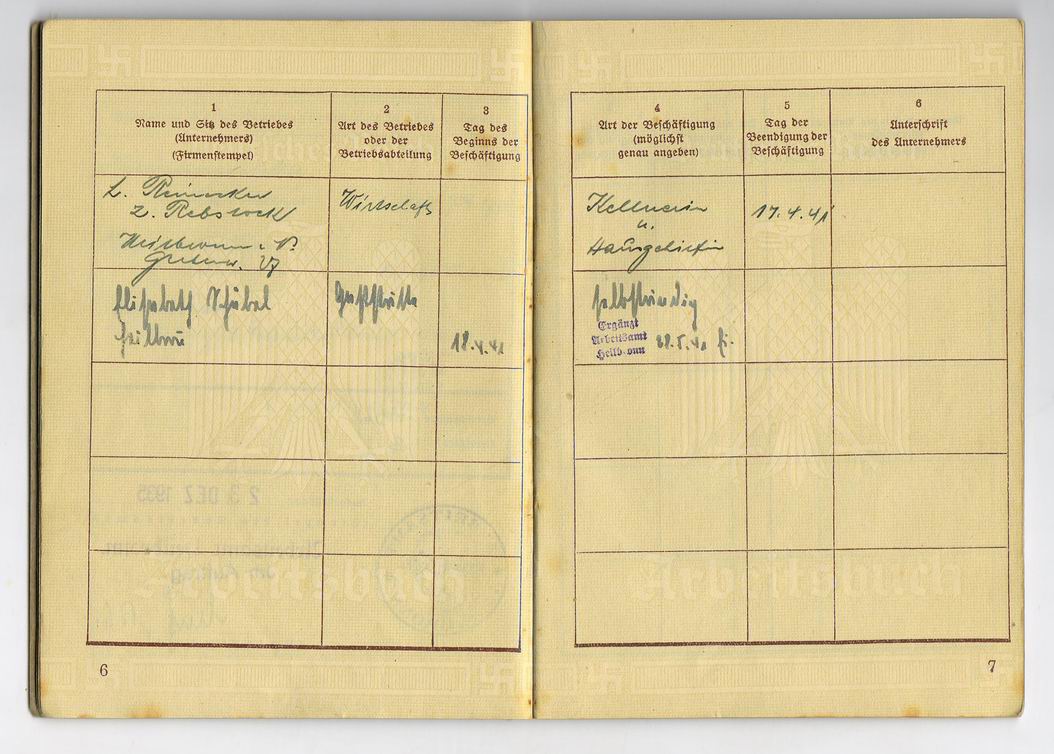 1
Name und Sitz des Betriebes
(Unternehmers)
(Firmenstempel)
2
Art des Betriebes
oder der
Betriebsabteilung
3
Tag des
Beginns der
Beschäftigung
4
Art der Beschäftigung
(möglichst
genau angeben)
5
Tag der
Beendigung der
Beschäftigung
6
Unterschrift
des Unternehmers
z. Rebstock
Heilbronn a. N.
Wirtschaft
Kellnerin
u.
Hausgehilfin
17.4.41
Elisabeth
Heilbronn
Gaststätte
18.4.41
selbständig
Ergänzt
Arbeitsamt
Heilbronn
28.5.41
23 DEZ 1935
Arbeitsbuch
Arbeitsbuch
6
7